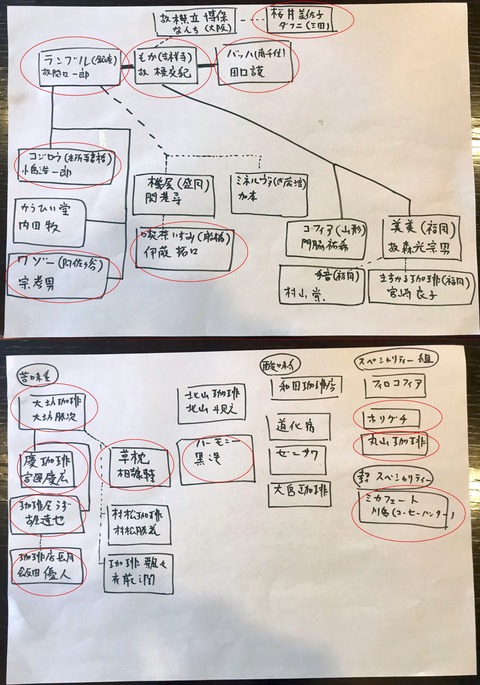 故 襟立 博保
なんち (大阪)
桜井美佐子
ダフニ (三田)
ランブル (銀座)
故 関口一郎
もか (吉祥寺)
故 標交紀
バッハ (南千住)
田口護
コジロウ
かうひい堂
内田 牧
ワゾー (阿佐ヶ谷)
宗孝男
機屋 (盛岡)
関基尋
ミネルヴァ
加本
喫茶いずみ (船橋)
伊藤 拓口
コフィア (山形)
門脇祐希
美美 (福岡)
故 森光宗男
手音 (福岡)
村山 崇
まちかる珈琲 (福岡)
宮崎 良子
苦味系
大坊珈琲
大坊勝次
慶珈琲
宮田慶広
珈琲屋うず
珈琲店長月
飯田 優人
草枕
村松珈琲
村松服義
珈琲 観々
北山珈琲
ハーモニー
黒沢
酸味系
和田珈琲店
道化宿
ゼーサワ
大宮珈琲
スペシャリティー組
フィロコフィア
ホリグチ
丸山珈琲
スペシャリティー
ミカフェート
川島 (コーヒーハンター)